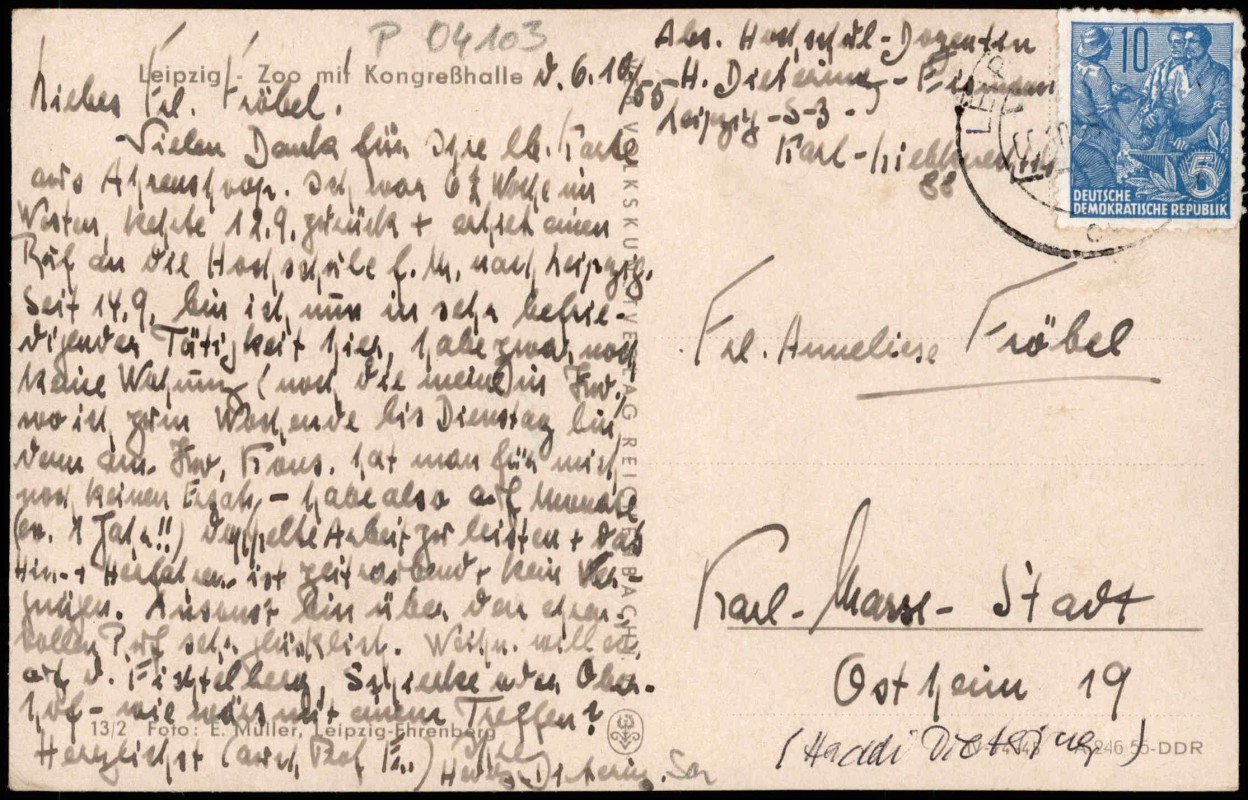 P 04103
Leipzig - Zoo mit Kongreßhalle
d. 6.10./55
Liebes Frl. Fröbel.
Vielen Dank für Ihre lb. Karte
aus Ahrenshoop. Ich war 6 ½ Woche im
Westen, kehrte 12.9. zurück + erhielt einen
Ruf an die Hochschule f. M. nach Leipzig.
Seit 14.9. bin ich nun in sehr befrie-
digender Tätigkeit hier, habe zwar noch
keine Wohnung (noch die meine) in
wo ich zum Wochende bis Dienstag bin
denn am Kons. hat man für mich
noch keinen Ersatz - habe also auf Monate
(ev. 1 Jahr!!) doppelte Arbeit zu leisten + das
Hin- + Herfahren ist zeitraubend + kein Ver-
gnügen. Ansonst bin über den ehren-
vollen Ruf sehr glücklich. Weihn. will ich
auf d. Fichtelberg, Schierke oder Ober-
hof - wie wärs mit einem Treffen?
Herzlichst (auch Prof.) Ihre
13/2 Foto: E. Müller, Leipzig-Ehrenberg
VOLKSKUNSTVERLAG REICHENBACH
Abs. Hochschul-Dozentin
H. Dietering
Leipzig-S-3-
Karl-Liebknechtstr
88
10
5
DEUTSCHE
DEMOKRATISCHE REPUBLIK
Frl. Anneliese Fröbel
Karl-Marx-Stadt
Ostheim 19
(Haddi Dietering)
246 55-DDR